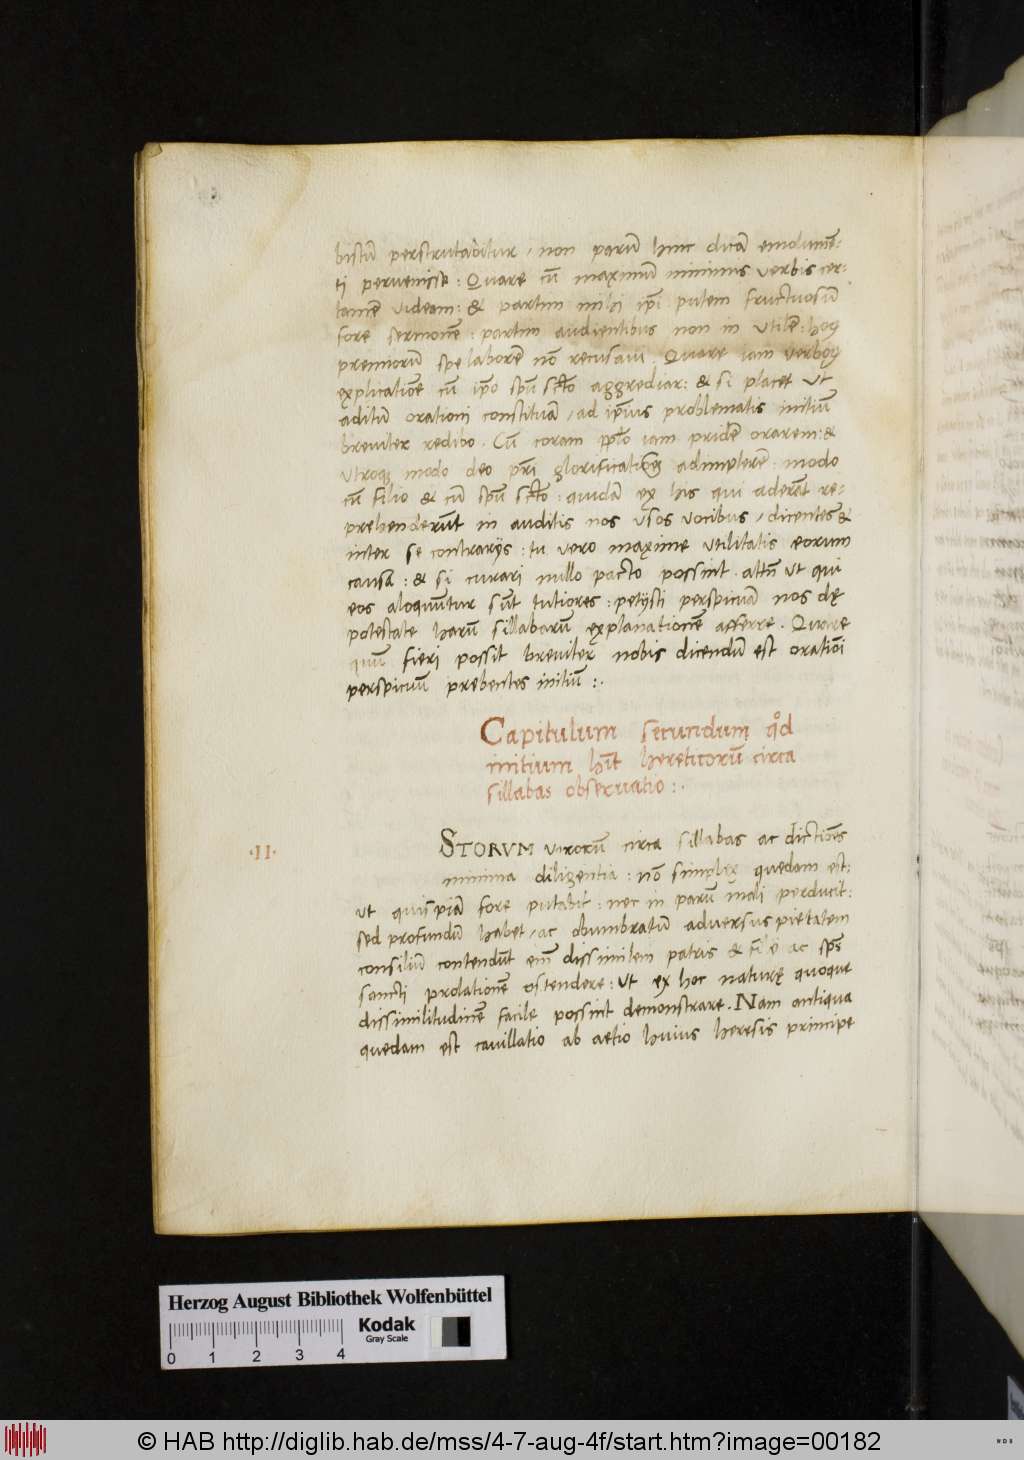 bistũ perstrutabitur, non parũ hinc dicã emolumẽ-
ti pervenisse: Quare cũ maximũ minimis verbis cer-
tamẽ videam: & partim mihi ip̃i putem fructuosũ
fore sermonẽ: partim audientibus non in utilẽ: hoꝝ
premiorũ spe laborẽ nõ recusavi. Quare iam verboꝝ
explicationẽ cũ ip̃o sp̃u sc̃to aggrediar: & si placet ut
aditũ orationi constituã, ad ip̃ius problematis initiũ
breviter redibo. Cũ coram pp̃lo iam pridẽ orarem: &
utroqꝫ modo deo pr̃i glorificationẽ adimplerẽ: modo
cũ filio & cũ sp̃u sc̃to: quidã ex his qui aderãt re-
prehenderũt in auditis nos usos vocibus, dicentes &
inter se contrarijs: tu vero maxime utilitatis eorum
causa: & si curari nullo pacto possint. attñ ut qui
eos aloquũtur sũt tutiores: petijsti perspicuã nos dę
potestate harũ sillabarũ explanationẽ afferre. Quare
quũ fieri possit breviter nobis dicendũ est orationi
perspicuũ prebentes initiũ:.
Capitulum secundum qd̃
initium hĩt hereticorũ circa
sillabas observatio:.
·II·
ISTORVM virorũ circa sillabas ac dictiões
minima diligentia: nõ simplex quedam est:
ut quispiã fore putabit: nec in parũ mali perducit:
sed profundũ habet, ac obumbratũ adversus pietatem
consiliũ contendũt em̃ dissimilem patris & filĩ ac sp̃s
sancti prolationẽ ostendere: ut ex hoc naturę quoque
dissimilitudinẽ facile possint demonstrare. Nam antiqua
quedam est cavillatio ab aetio huius heresis principe
Herzog August Bibliothek Wolfenbüttel
Kodak
Gray Scale
0 1 2 3 4
© HAB http://diglib.hab.de/mss/4-7-aug-4f/start.htm?image=00182
WDB